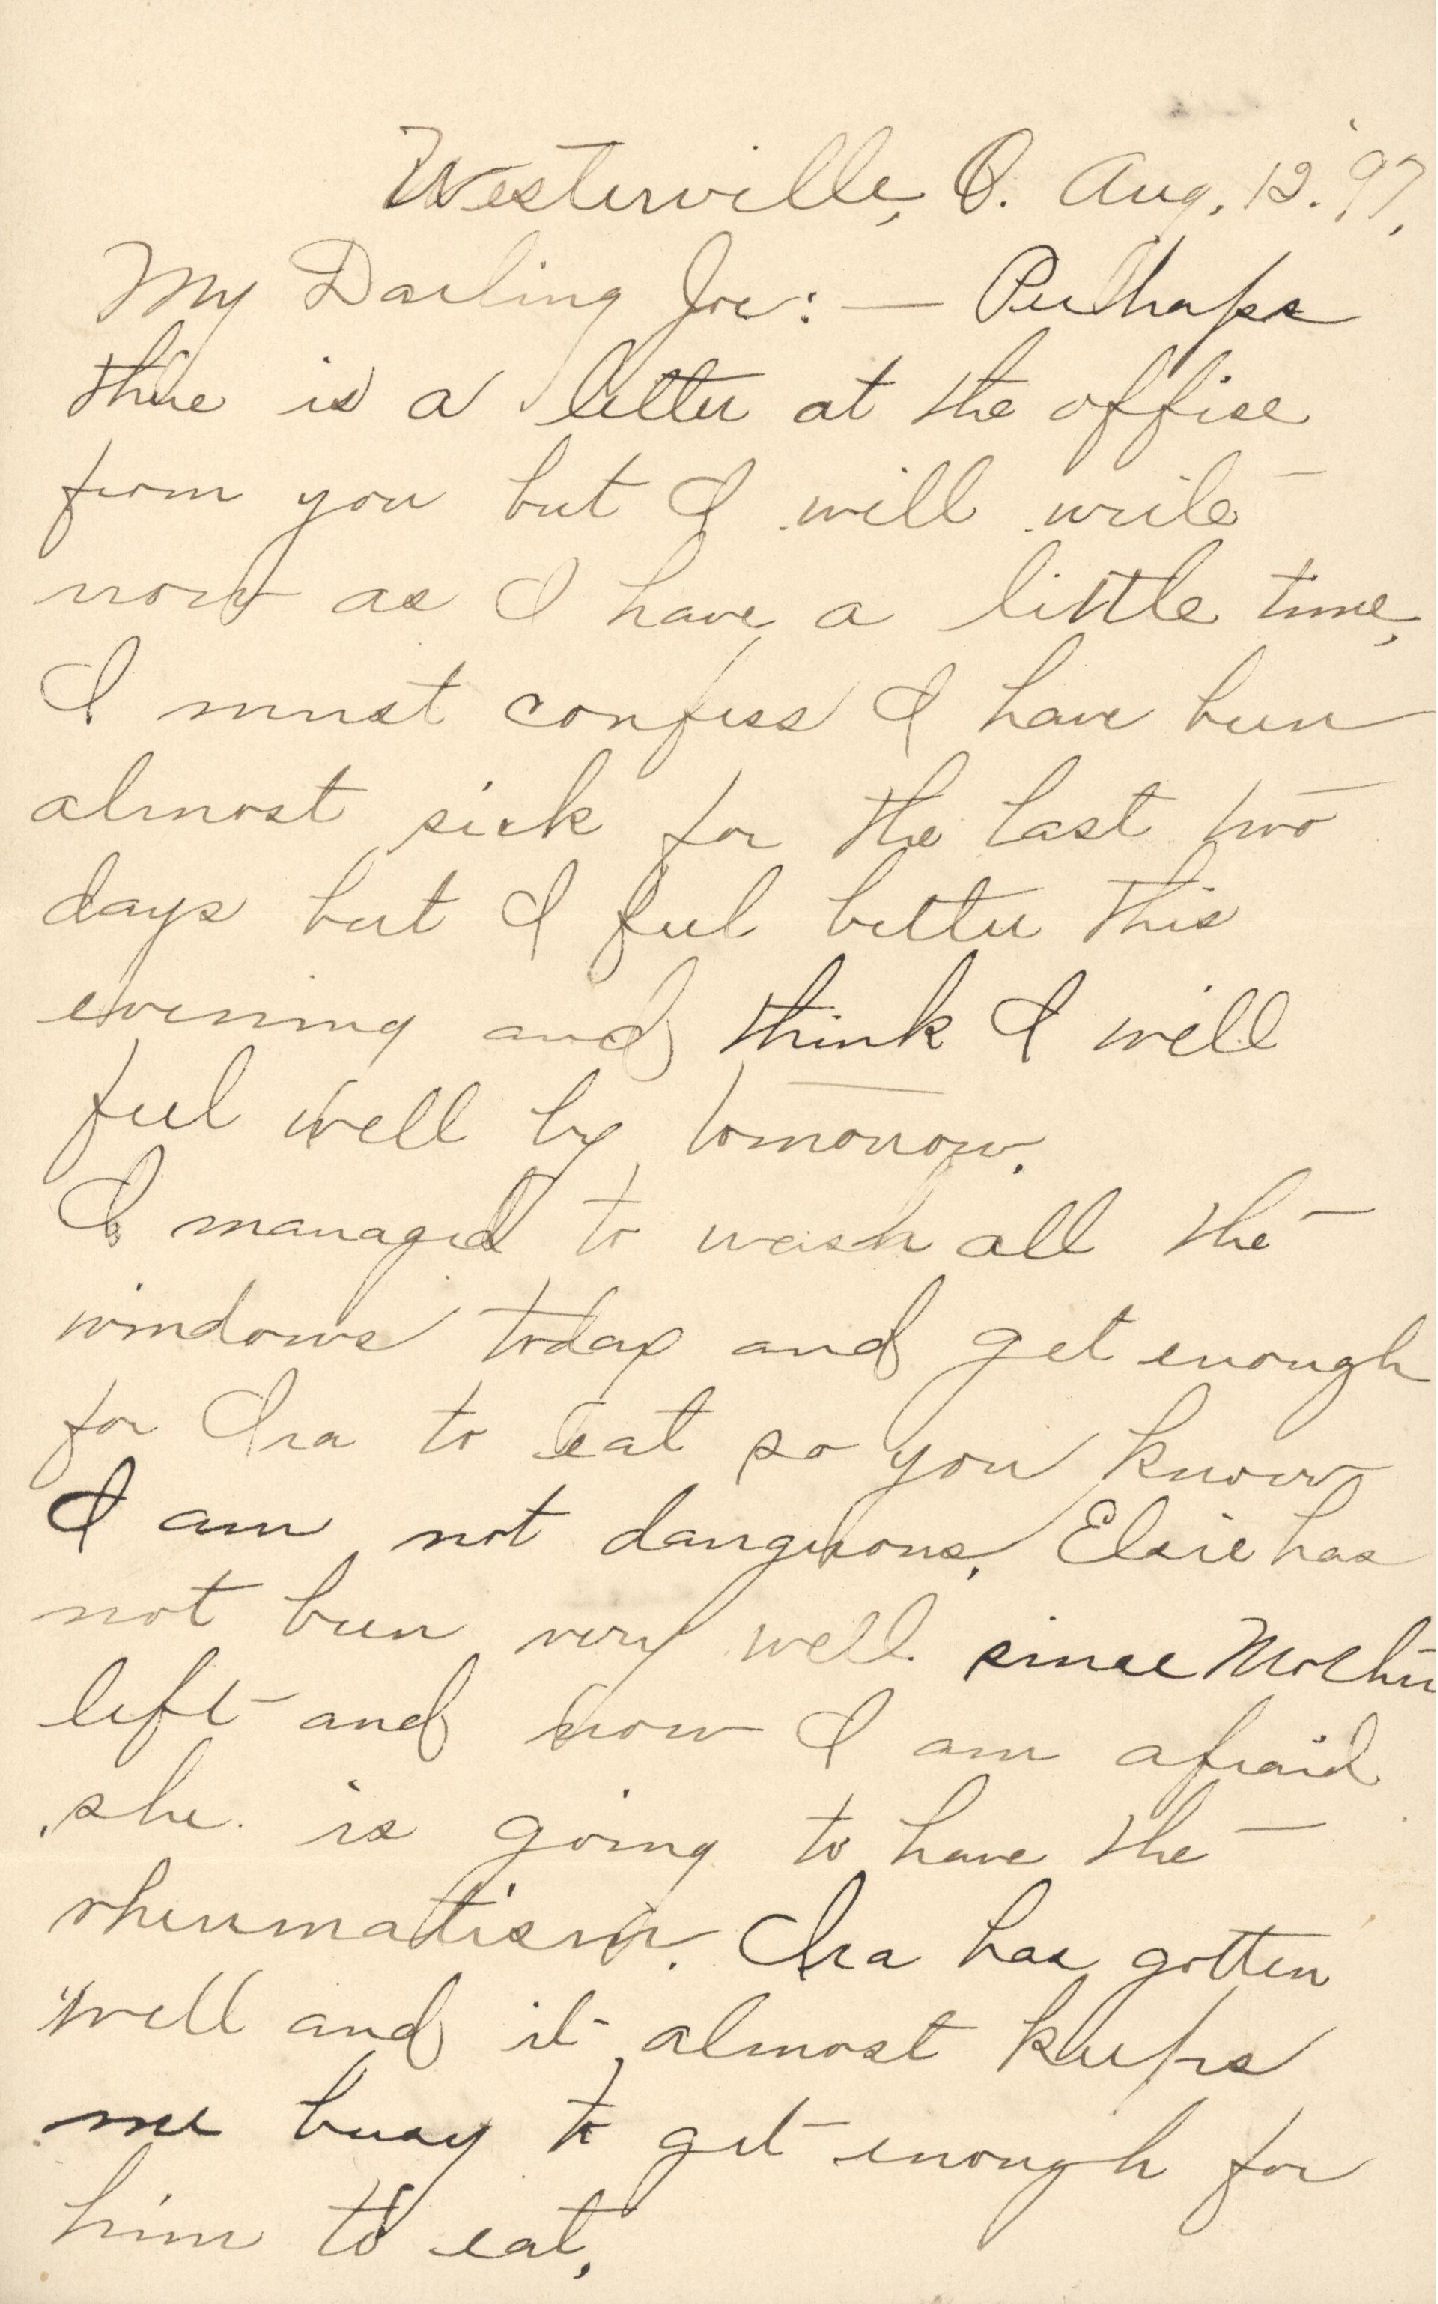 Westerville, O. Aug. 12. '97.
My Darling Joe: — Perhaps
there is a letter at the office
from you but I will write
now as I have a little time,
I must confess I have been
almost sick for the last two
days but I feel better this
evening and think I will
feel well by tomorrow.
I managed to wash all the
windows today and get enough
for Ira to eat so you know
I am not dangerous. Elsie has
not been very well since Mother
left and now I am afraid
she is going to have the
rheumatism. Ira has gotten
well and it almost keeps
me busy to get enough for
him to eat.